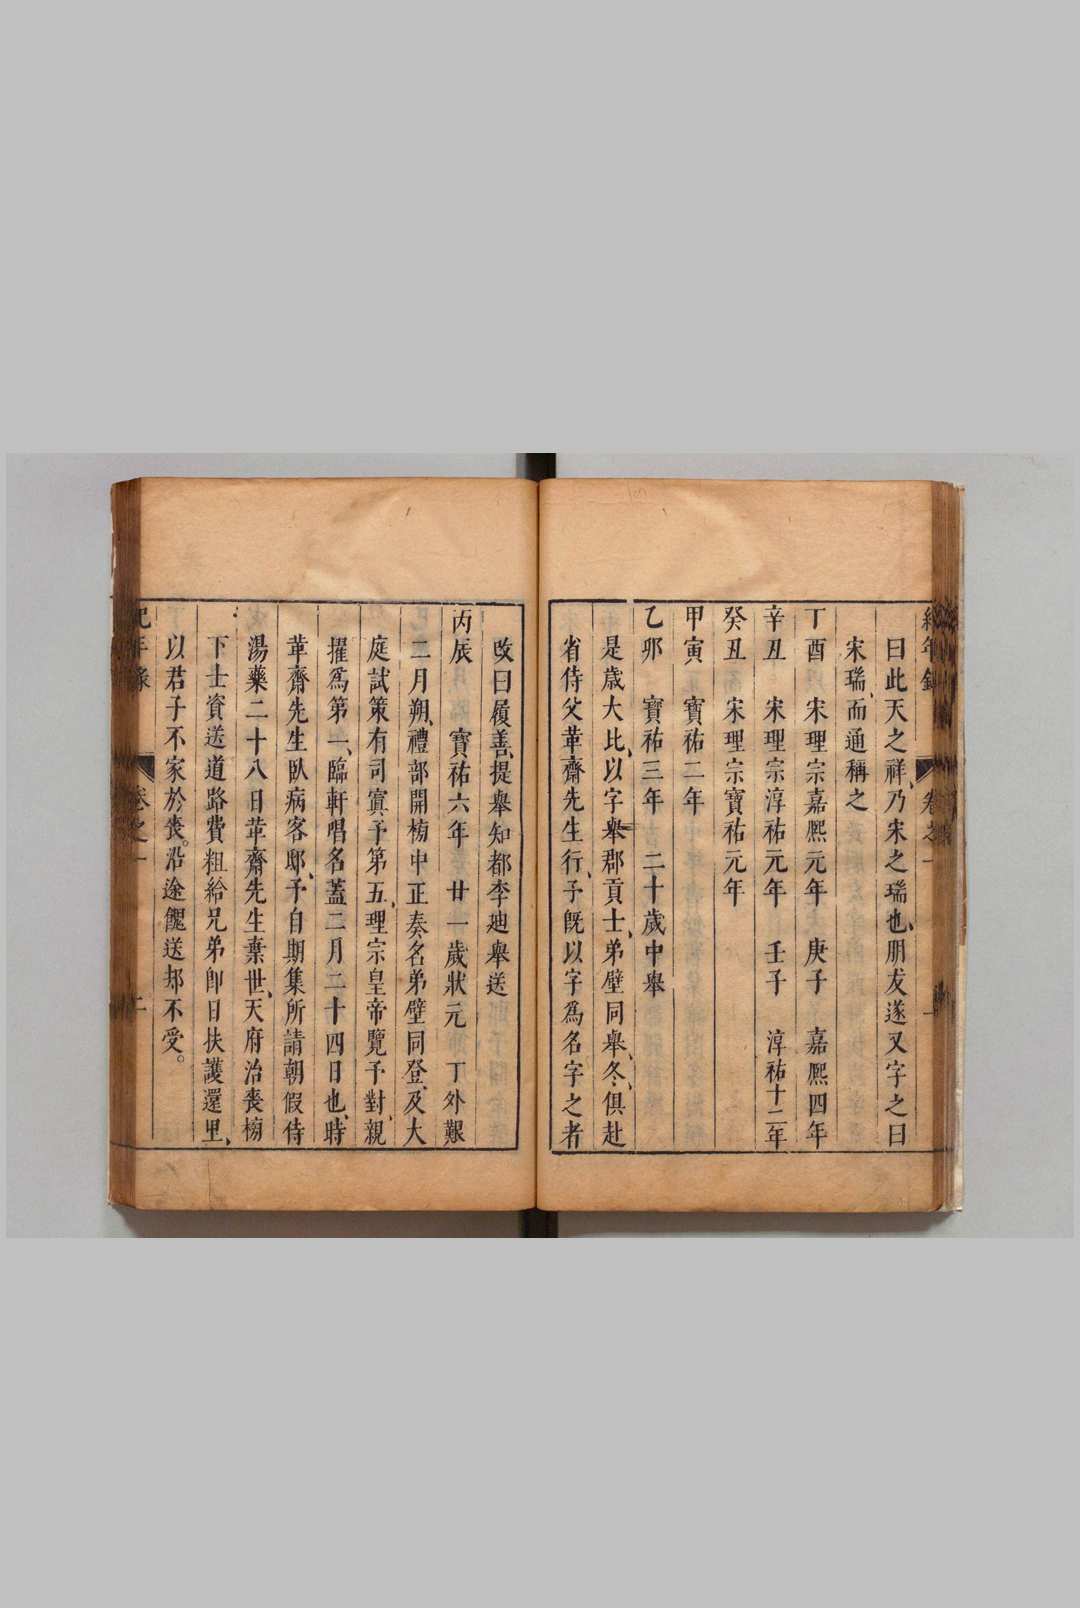 曰此天之祥、乃宋之瑞也、朋友遂又字之曰
宋瑞、而通稱之
丁酉 宋理宗嘉熙元年 庚子 嘉熙四年
辛丑 宋理宗淳祐元年 壬子 淳祐十二年
癸丑 宋理宗寶祐元年
甲寅 寶祐二年
乙卯 寶祐三年 二十歲中舉
是歲大比、以字舉郡貢士、弟壁同舉、冬、俱赴
省侍父革齋先生行、予旣以字爲名字之者
改曰履善、提舉知都李廸舉送
丙辰 寶祐六年 廿一歲狀元 丁外艱
二月朔、禮部開榜中正奏名弟壁同登、及大
庭試策有司寘予第五、理宗皇帝覽予對、親
擢爲第一、臨軒唱名蓋二月二十四日也、時
革齋先生臥病客邸、予自期集所請朝假侍
湯藥二十八日革齋先生棄世、天府治喪榜
下士資送道路費粗給兄弟卽日扶護還里、
以君子不家於喪。沿途餽送却不受。
紀年錄 卷之一 二